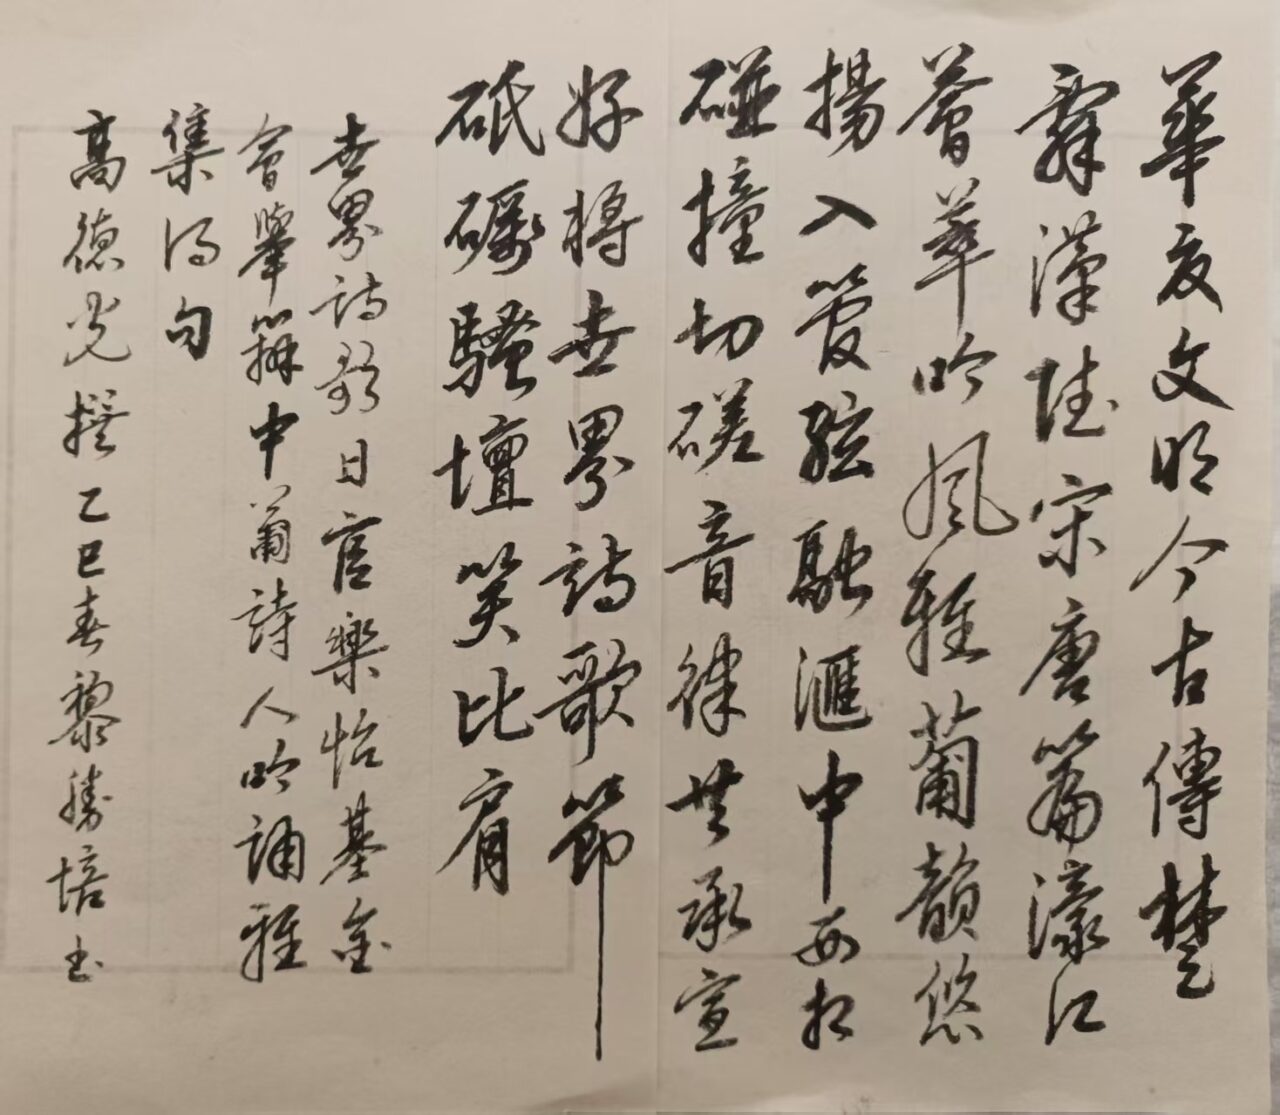 華夏文明今古傳楚
辭漢陸宋唐篇濠江
薈萃吟風雅葡韻悠
揚入管弦融滙中西相
碰撞切磋音律共承宣
好將世界詩歌節
砥礪騷壇笑比肩
世界詩歌日官樂怡基金
會舉辦中葡詩人吟誦雅
集得句
高德光撰乙巳春黎勝培书